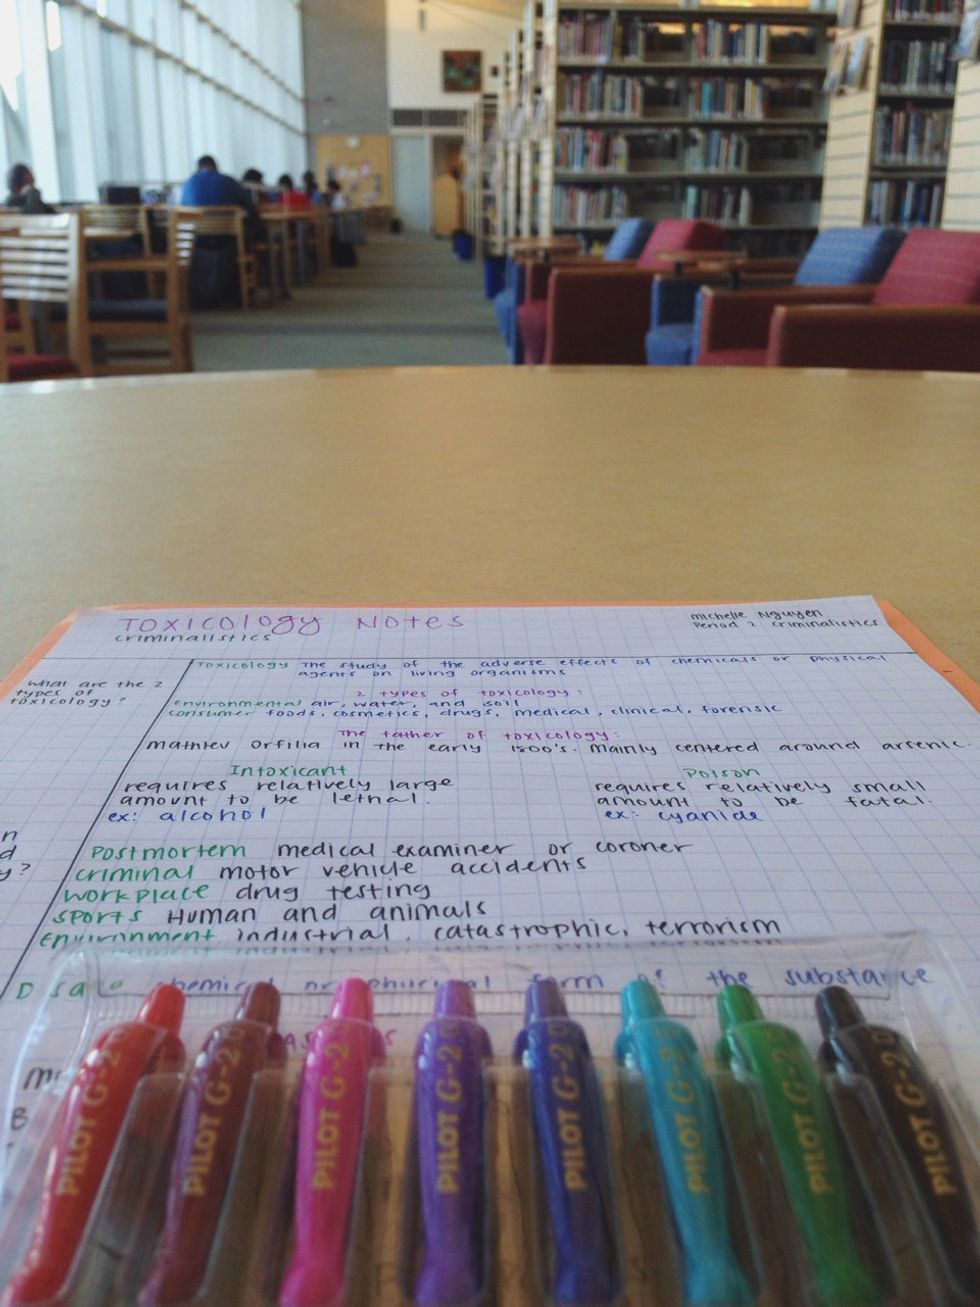 Toxicology Notes
criminalistics
Michelle Nguyen
Period 2 Criminalistics
What are the 2
types of
toxicology?
Toxicology The study of the adverse effects of chemicals or physical
agents on living organisms
2 types of toxicology:
Environmental air, water, and soil
Consumer foods, cosmetics, drugs, medical, clinical, forensic
The father of toxicology:
Mathiev Orfilia in the early 1800's. Mainly centered around arsenic.
Intoxicant
requires relatively large
amount to be lethal.
ex: alcohol
Poison
requires relatively small
amount to be fatal.
ex: cyanide
Postmortem medical examiner or coroner
Criminal motor vehicle accidents
Workplace drug testing
Sports Human and animals
Environment industrial, catastrophic, terrorism
chemical or physical form of the substance
PILOT G-2
PILOT G-2
PILOT G-2
PILOT G-2
PILOT G-2
PILOT G-2
PILOT G-2
PILOT G-2